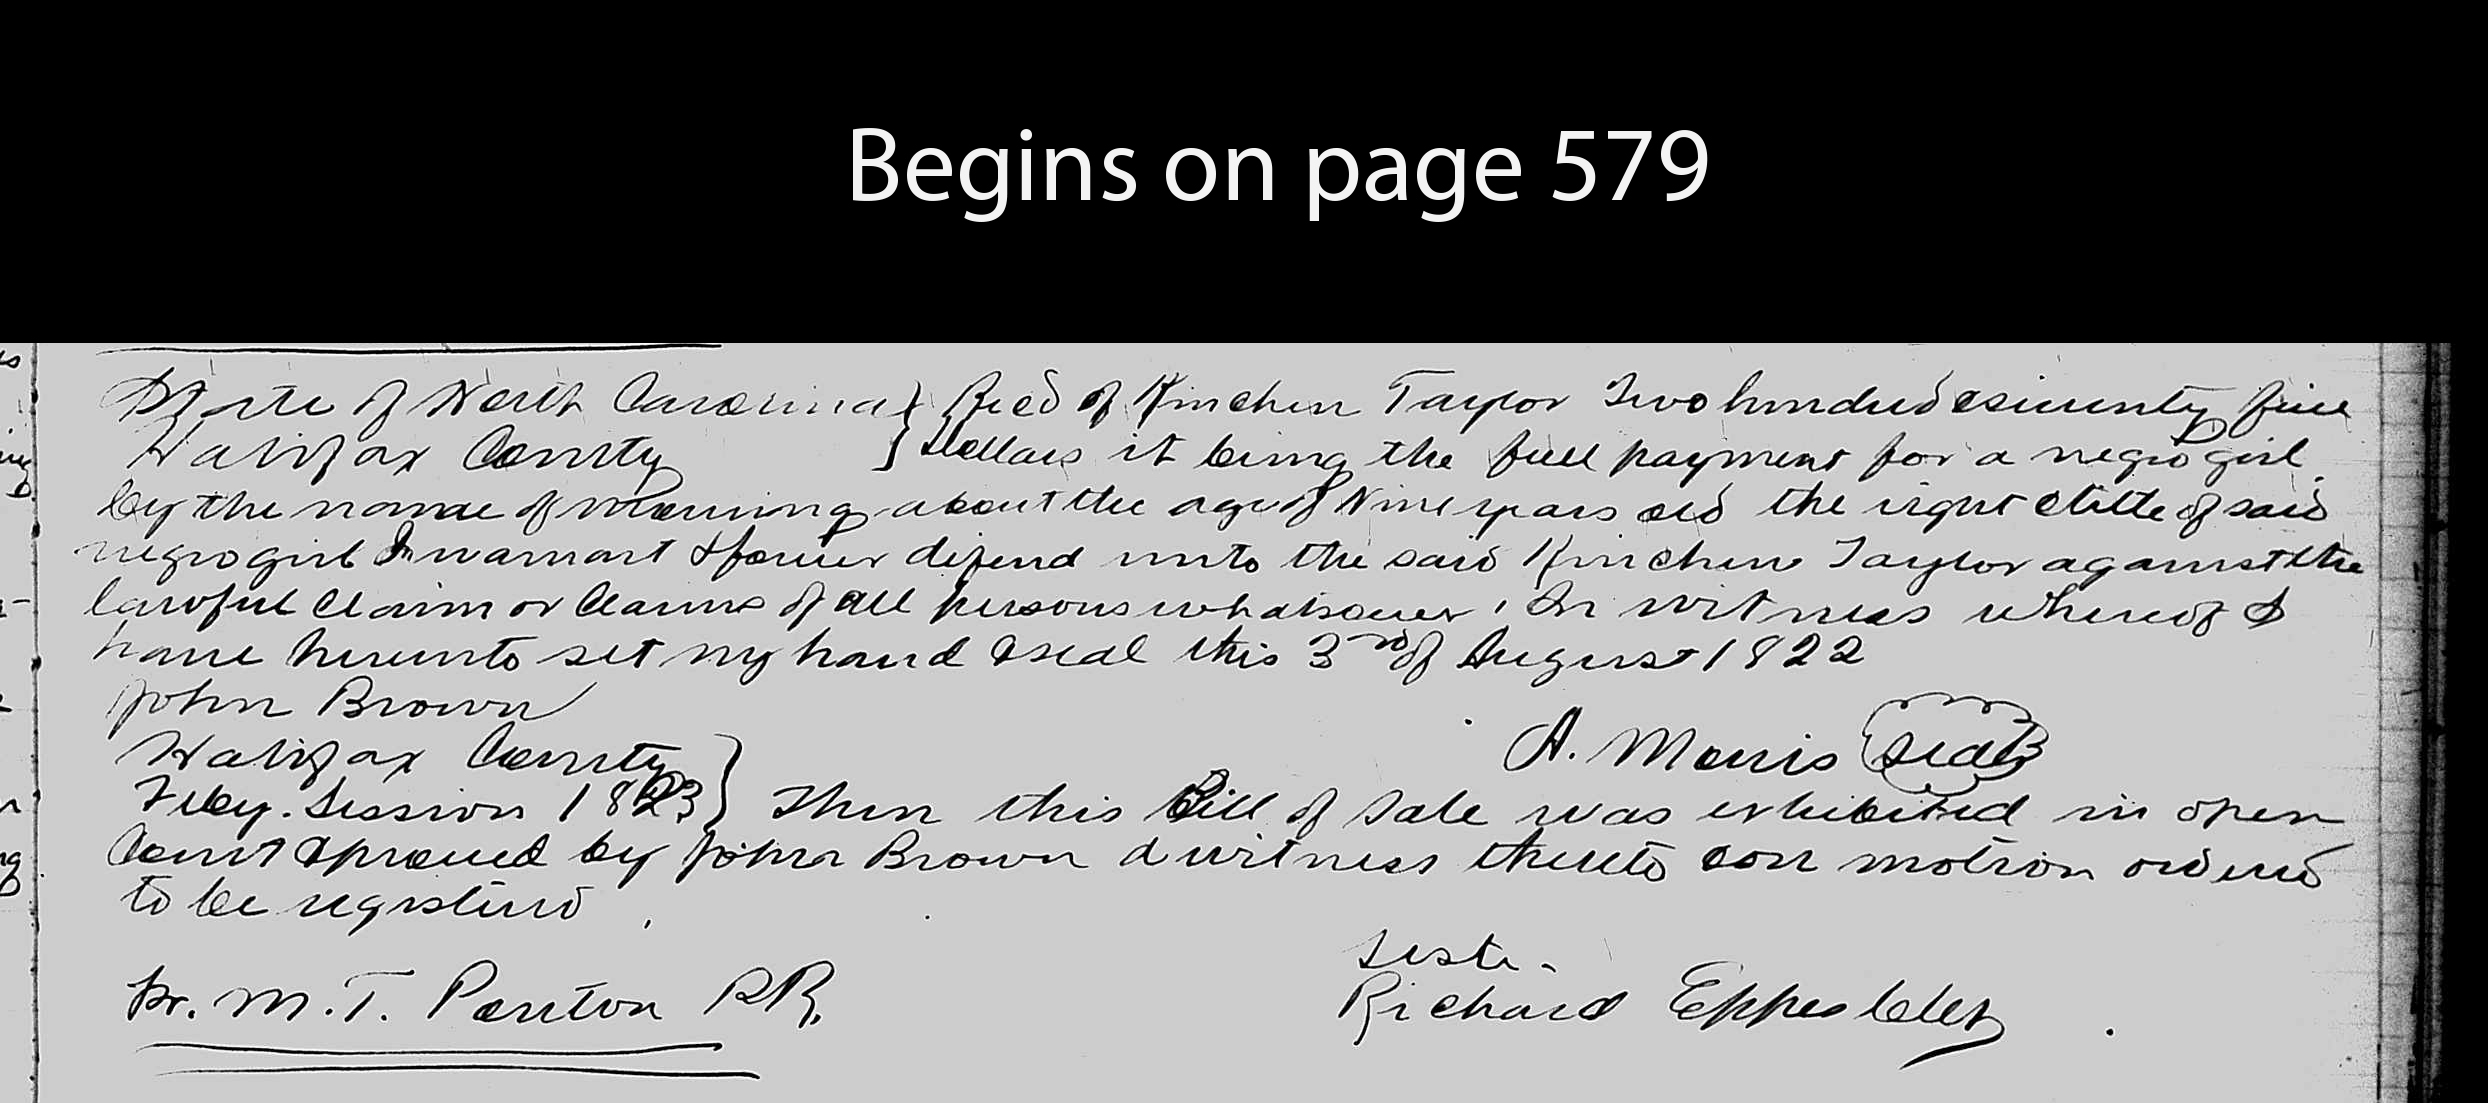 Begins on page 579
State of North Carolina } Recd of Kinchen Taylor Two hundred & seventy five
Halifax County } Dollars it being the full payment for a negro girl
by the name of Mourning about the age of Nine years old the right & title of said
negro girl I warrant & forever defend unto the said Kinchen Taylor against the
lawful Claim or Claims of all persons whatsoever, In witness whereof I
have hereunto set my hand & seal this 3rd of August 1822
John Brown
A. Morris Seal
Halifax County }
Feby. Session 1823 } Then this Bill of Sale was exhibited in open
Court & proved by John Brown a witness thereto & on motion ordered
to be registered
Teste.
Pr. M. T. Ponton P.R. Richard Eppes Clk